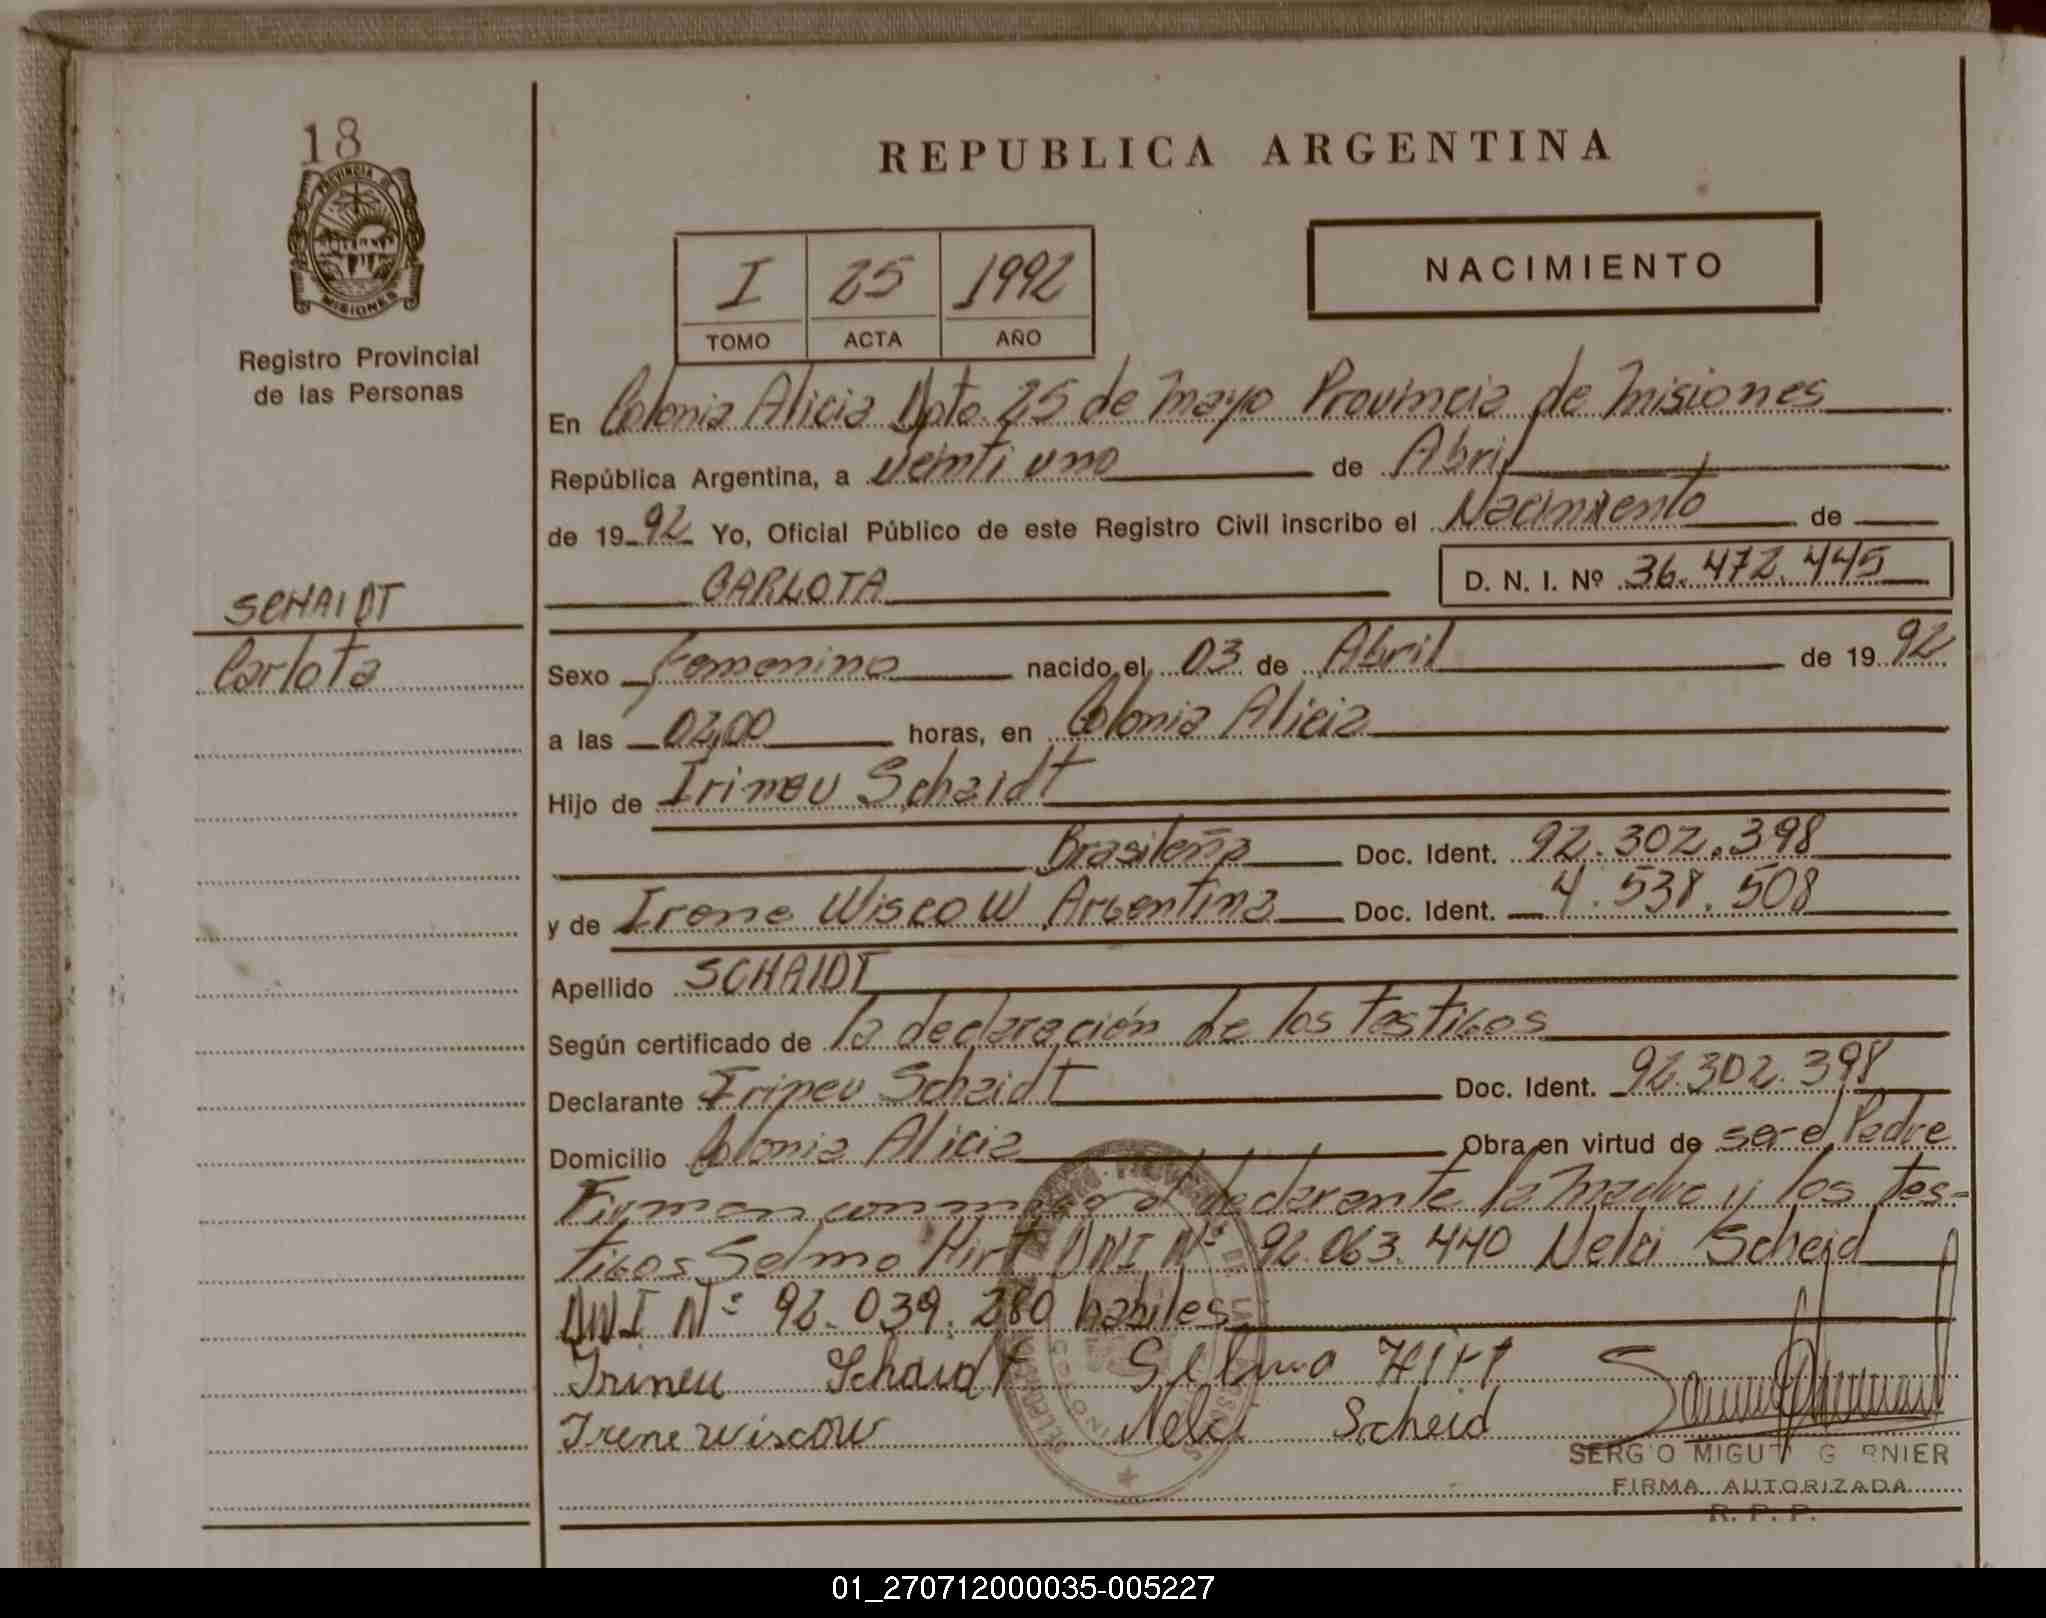 18
PROVINCIA DE
MISIONES
Registro Provincial
de las Personas
SCHAIDT
Carlota
REPUBLICA ARGENTINA
I 25 1992
TOMO ACTA AÑO
NACIMIENTO
En Colonia Alicia Dpto. 25 de Mayo Provincia de Misiones
República Argentina, a veinti uno de Abril
de 1992 Yo, Oficial Público de este Registro Civil inscribo el Nacimiento de
CARLOTA
D. N. I. Nº 36.472.445
Sexo Femenino nacido el 03 de Abril de 1992
a las 02,00 horas, en Colonia Alicia
Hijo de Irineu Schaidt
Brasileña Doc. Ident. 92.302.398
y de Irene Wiscow Argentina Doc. Ident. 4.538.508
Apellido SCHAIDT
Según certificado de la declaración de los testigos
Declarante Irineu Schaidt Doc. Ident. 92.302.398
Domicilio Colonia Alicia Obra en virtud de ser el Padre
Firman conmigo el declarante la Madre y los tes-
tigos Selmo Hirt DNI Nº 92.063.440 Nelci Scheid
DNI Nº 92.039.280 habiles
Irineu Schaidt Selmo Hirt
Irene wiscow Nelci Scheid
SERGIO MIGUEL
FIRMA AUTORIZADA
R. P. P.
01_270712000035-005227